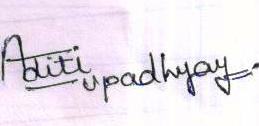 Aditi
upadhyay.